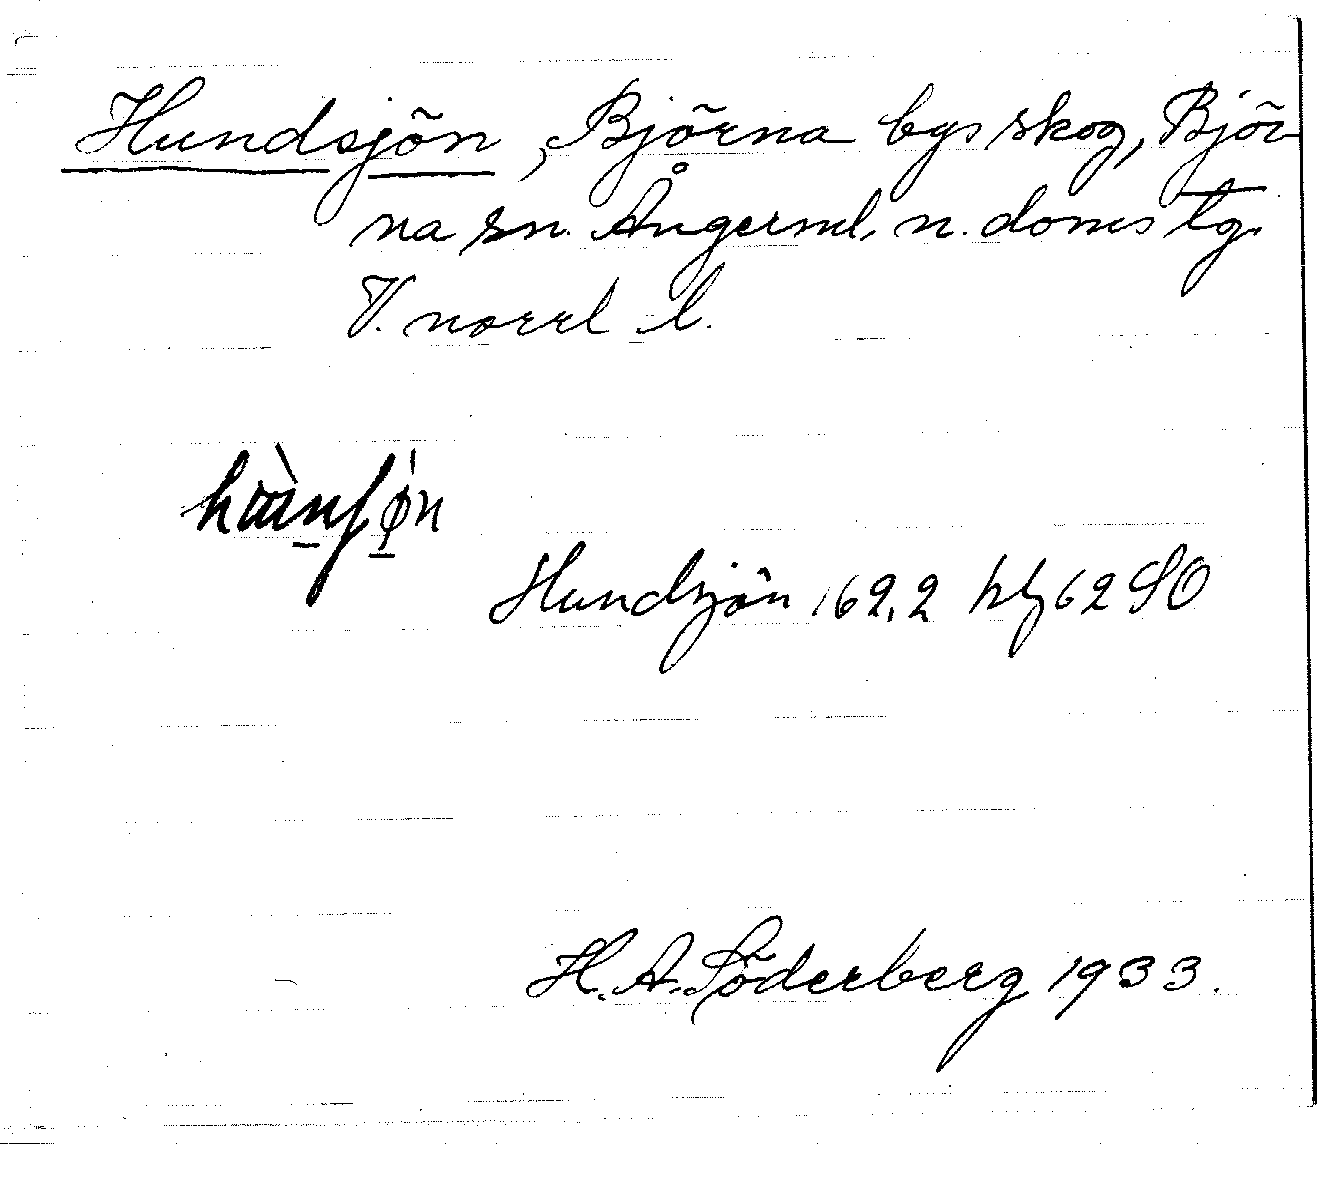 Hundsjön, Björna bys skog, Björ-
na sn. Ångerml. n. doms tg.
V. norrl l.
Hundsjön 162,2 hbl 62 SO
H. A. Söderberg 1933.